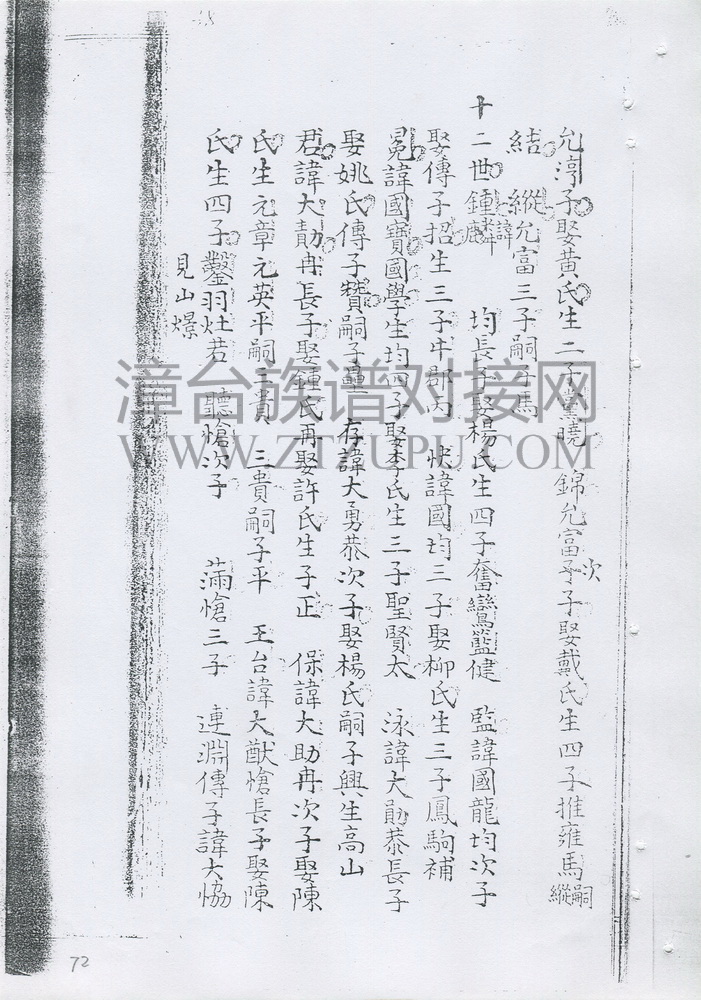 允淳子娶黃氏生二子黨曉 錦允富次子子娶戴氏生四子推雍馬嗣縱
結 縱允富三子嗣子馬
十二世鍾諱麟 均長子娶楊氏生四子奮鸞籃健 監諱國龍均次子
娶傳子招生三子牛郡丙 快諱國均三子娶柳氏生三子鳳駒補
冕諱國寶國學生均四子娶李氏生三子聖賢太 泳諱大勛恭長子
娶姚氏傳子贊嗣子壘 存諱大勇恭次子娶楊氏嗣子興生高山
君諱大勣冉長子娶鍾氏再娶許氏生子正 保諱大助冉次子娶陳
氏生元章元英平嗣三貴 三貴嗣子平 王台諱大猷愴長子娶陳
氏生四子鑿羽灶若 聽愴次子 蒲愴三子 連淵傳子諱大恊
見山燝
漳台族谱对接网
WWW.ZTZUPU.COM
72